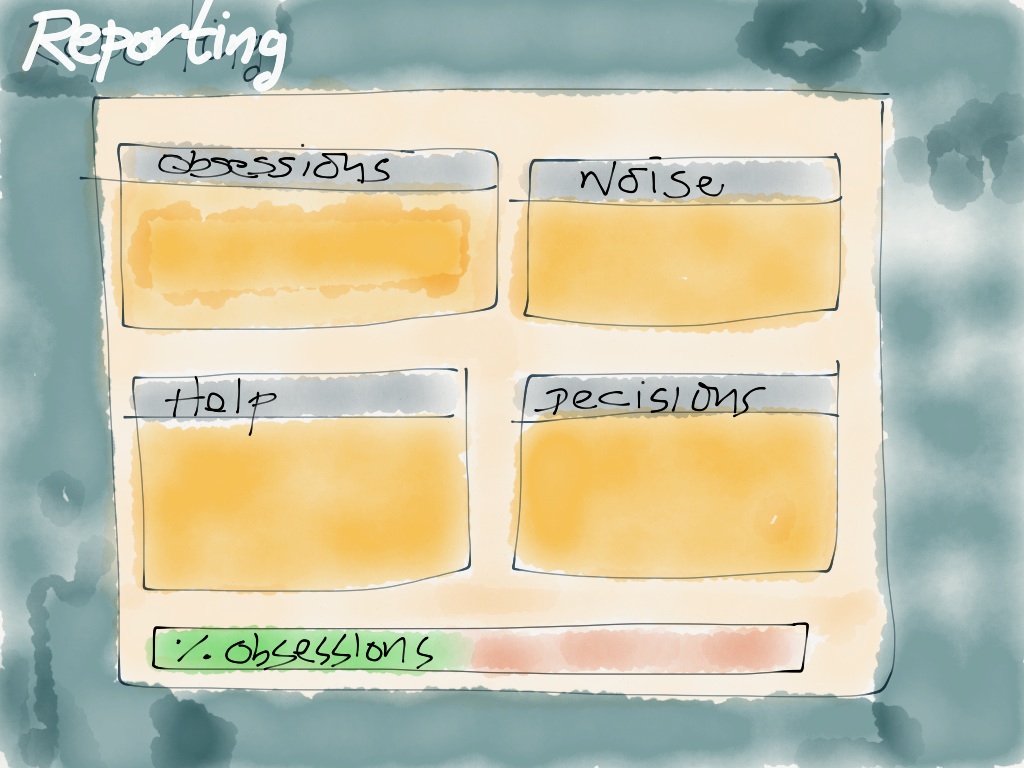 Reporting
Obsessions
Noise
Help
Decisions
% Obsessions